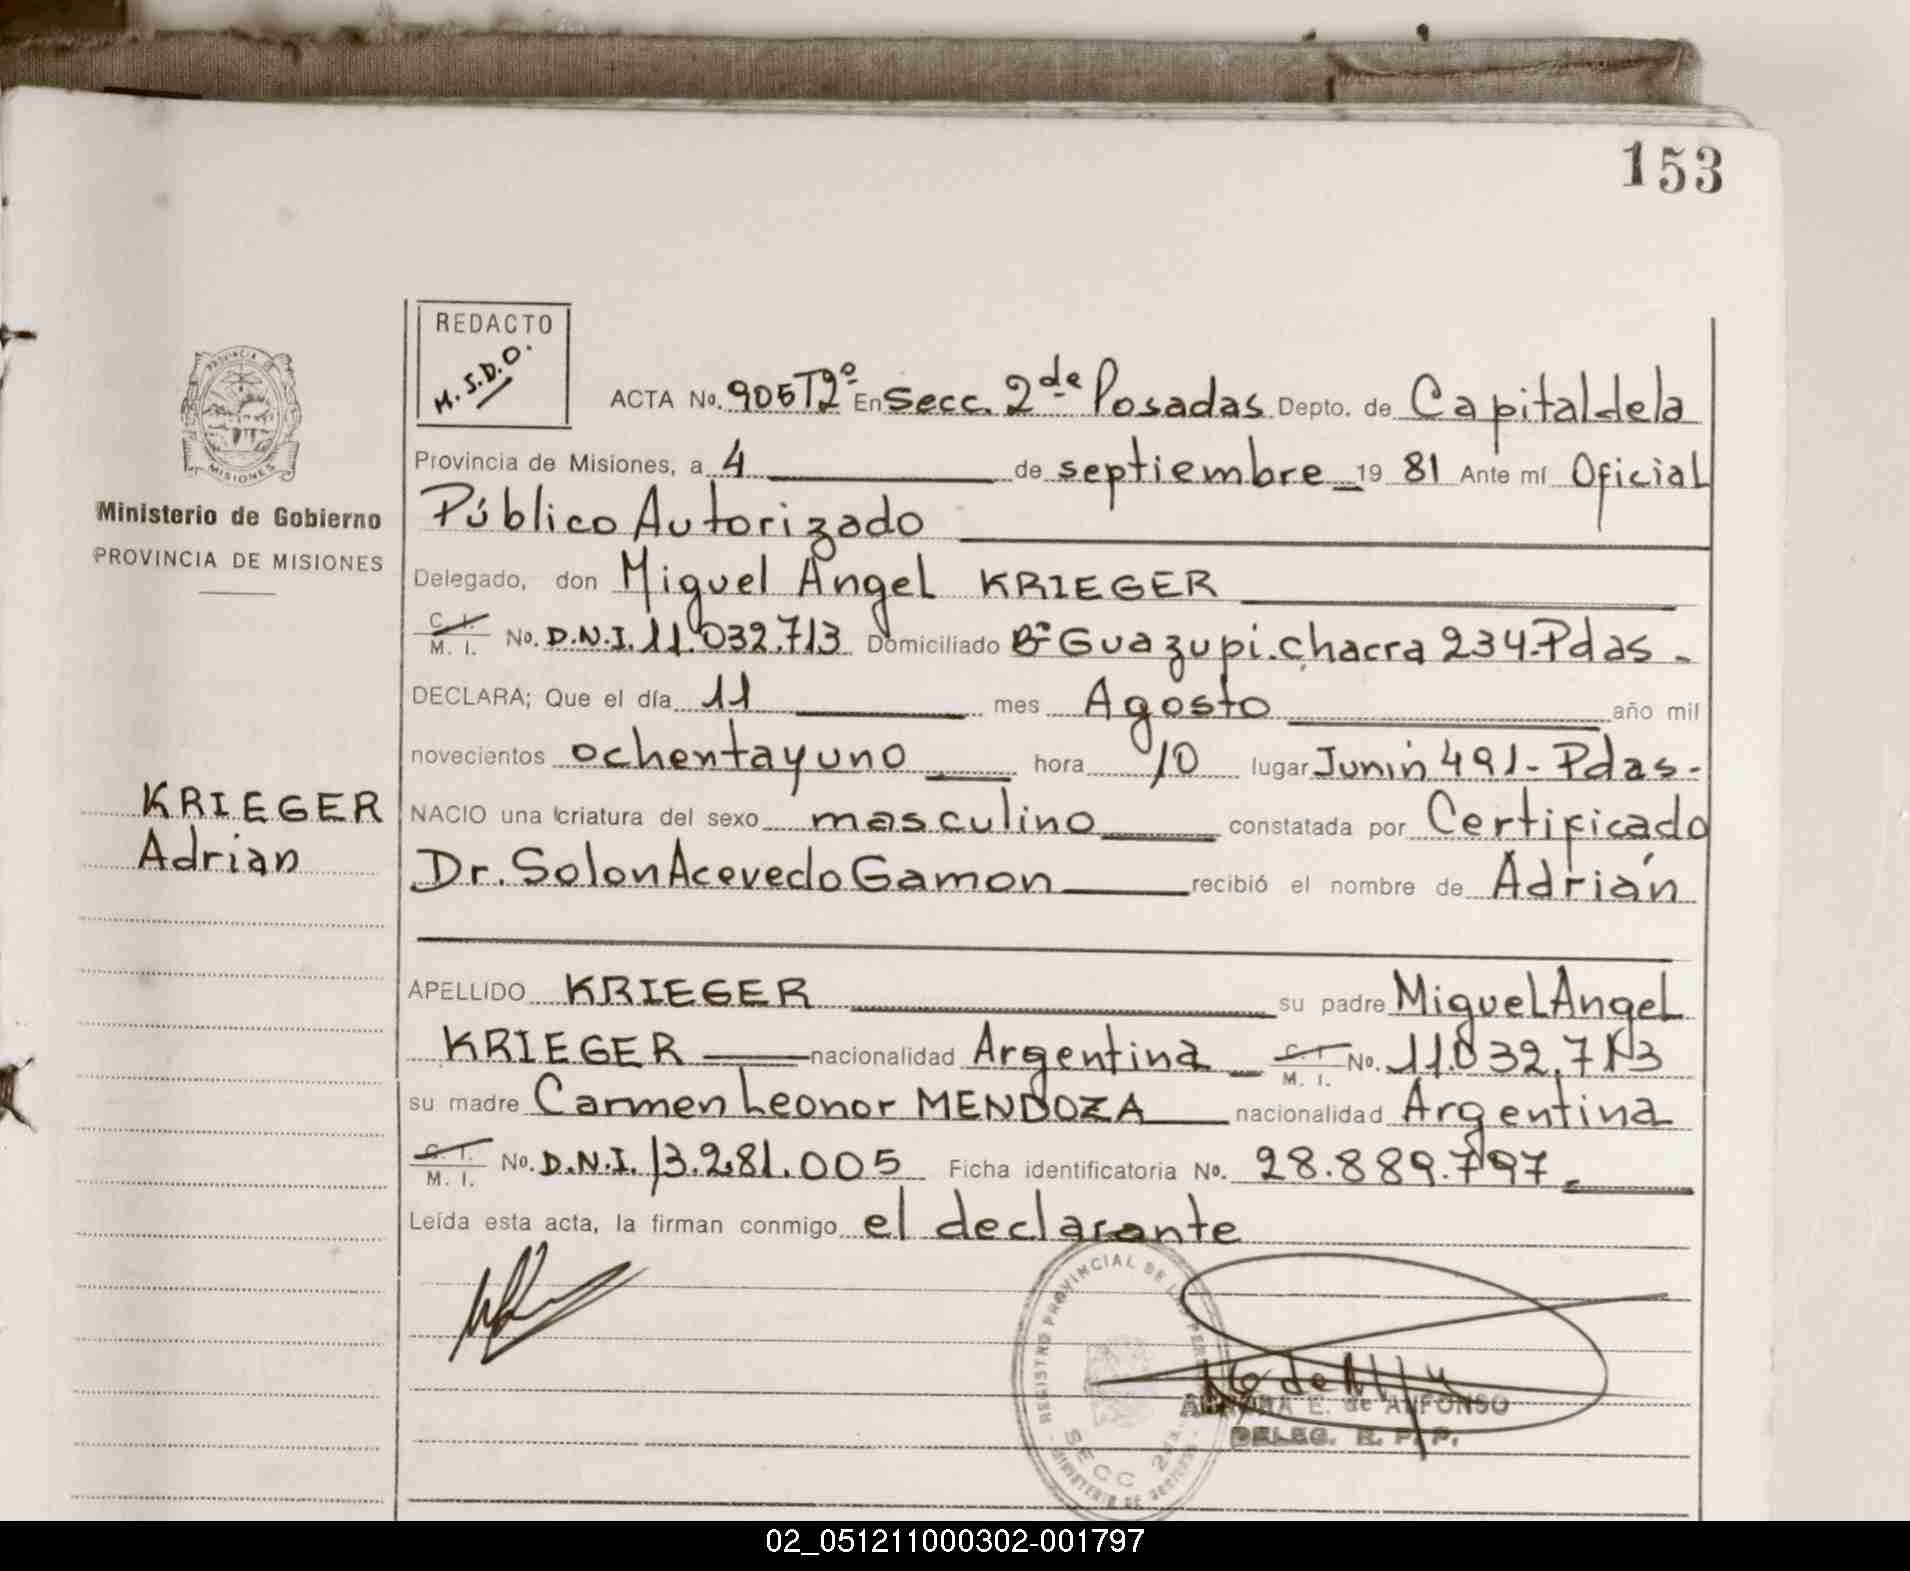 153
REDACTO
M. S.D.O.
ACTA No. 905T2º En Secc. 2 da Posadas Depto. de Capital dela
Provincia de Misiones, a 4 de septiembre 19 81 Ante mí Oficial
Público Autorizado
Delegado, don Miguel Angel KRIEGER
C. I. M. I. No. D.N.I. 11.032.713 Domiciliado Bº Guazupi.chacra 234.Pdas.
DECLARA; Que el día 11 mes Agosto año mil
novecientos ochentayuno hora 10 lugar Junin 491-Pdas.
NACIO una criatura del sexo masculino constatada por Certificado
Dr. Solon Acevedo Gamon recibió el nombre de Adrián
APELLIDO KRIEGER su padre Miguel Angel
KRIEGER nacionalidad Argentina C. I. M. I. No. 11.032.713
su madre Carmen Leonor MENDOZA nacionalidad Argentina
C. I. M. I. No. D.N.I. 13.281.005 Ficha identificatoria No. 28.889.797
Leída esta acta, la firman conmigo el declarante
PROVINCIA DE
MISIONES
Ministerio de Gobierno
PROVINCIA DE MISIONES
KRIEGER
Adrian
REGISTRO PROVINCIAL DE LAS PERS
SECC 2da
MINISTERIO DE
E. de ALFONSO
DELEG. R. P. P.
02_051211000302-001797